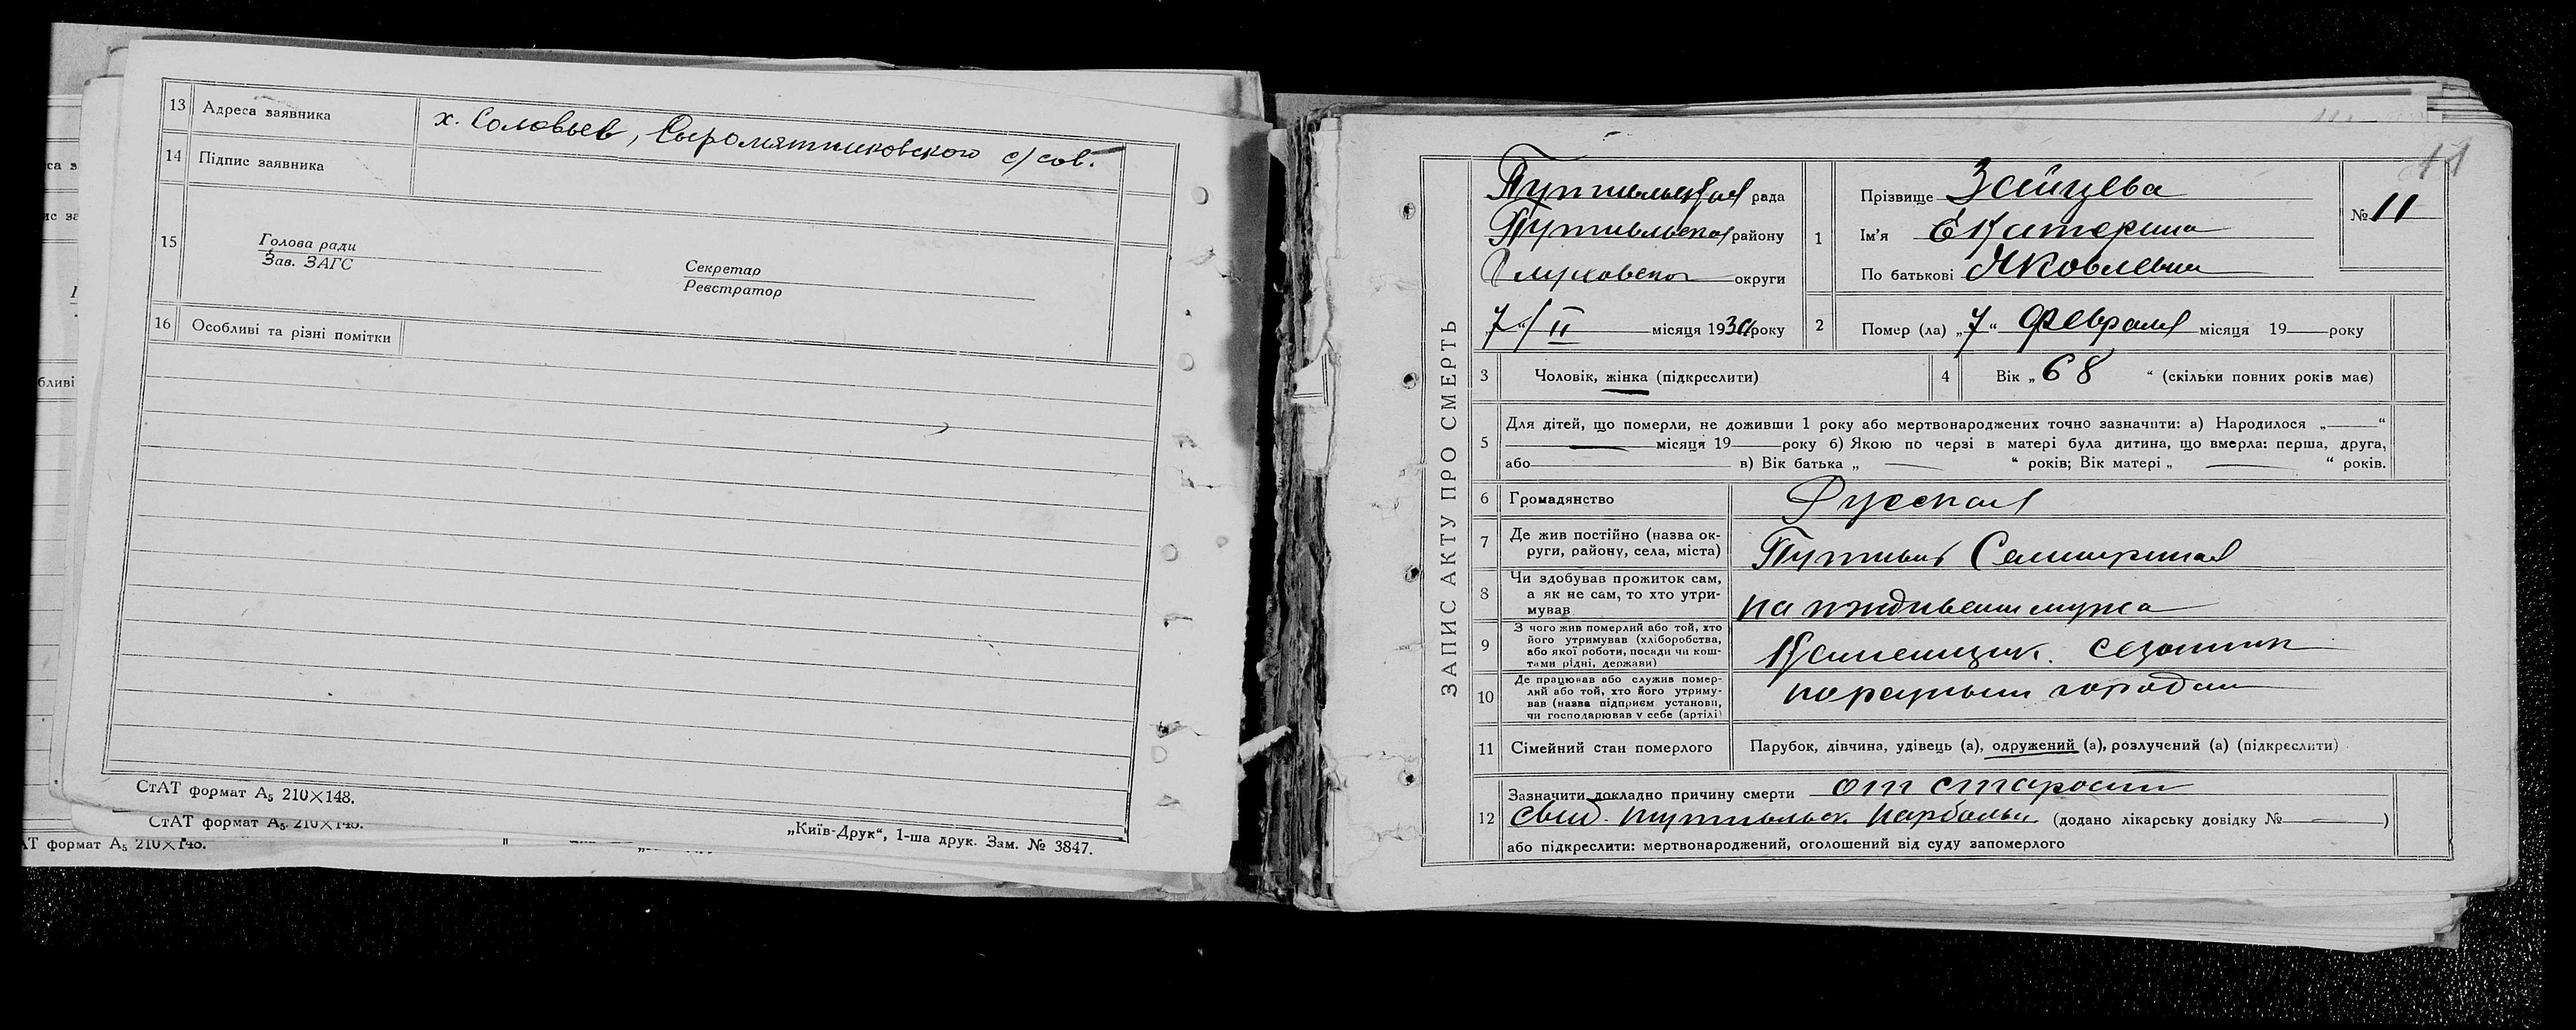 13 Адреса заявника х. Соловьев, Сыромятниковского с/сов.
14 Підпис заявника
15 Голова ради
Зав. ЗАГС
Секретар
Реєстратор
16 Особливі та різні помітки
СтАТ формат А₅ 210×148.
„Київ-Друк“, 1-ша друк. Зам. № 3847.
СтАТ формат А₅ 210×148.
АТ формат А₅ 210×148.
11
ЗАПИС АКТУ ПРО СМЕРТЬ
Путивльская рада
Путивльского району
Глуховской округи
7 “/ II місяця 1930 року
1 Прізвище Зайцева
Ім'я Екатерина
По батькові Яковлевна
№ 11
2 Помер (ла) „7“ Февраля місяця 19 року
3 Чоловік, жінка (підкреслити)
4 Вік „68“ (скільки повних років має)
5 Для дітей, що померли, не доживши 1 року або мертвонароджених точно зазначити: а) Народилося „ “
місяця 19 року б) Якою по черзі в матері була дитина, що вмерла: перша, друга,
або в) Вік батька „ “ років; Вік матері „ “ років.
6 Громадянство Русская
7 Де жив постійно (назва ок-
руги, району, села, міста) Путивль
8 Чи здобував прожиток сам,
а як не сам, то хто утри-
мував на иждивении мужа
9 З чого жив померлий або той, хто
його утримував (хліборобства,
або якої роботи, посади чи кош-
тами рідні, держави) Каменщик. сезонник
10 Де працював або служив помер-
лий або той, хто його утриму-
вав (назва підприєм установи,
чи господарював у себе (артілі) по разным городам
11 Сімейний стан померлого Парубок, дівчина, удівець (а), одружений (а), розлучений (а) (підкреслити)
12 Зазначити докладно причину смерти от старости
свид. Путивльск. (додано лікарську довідку № )
або підкреслити: мертвонароджений, оголошений від суду запомерлого